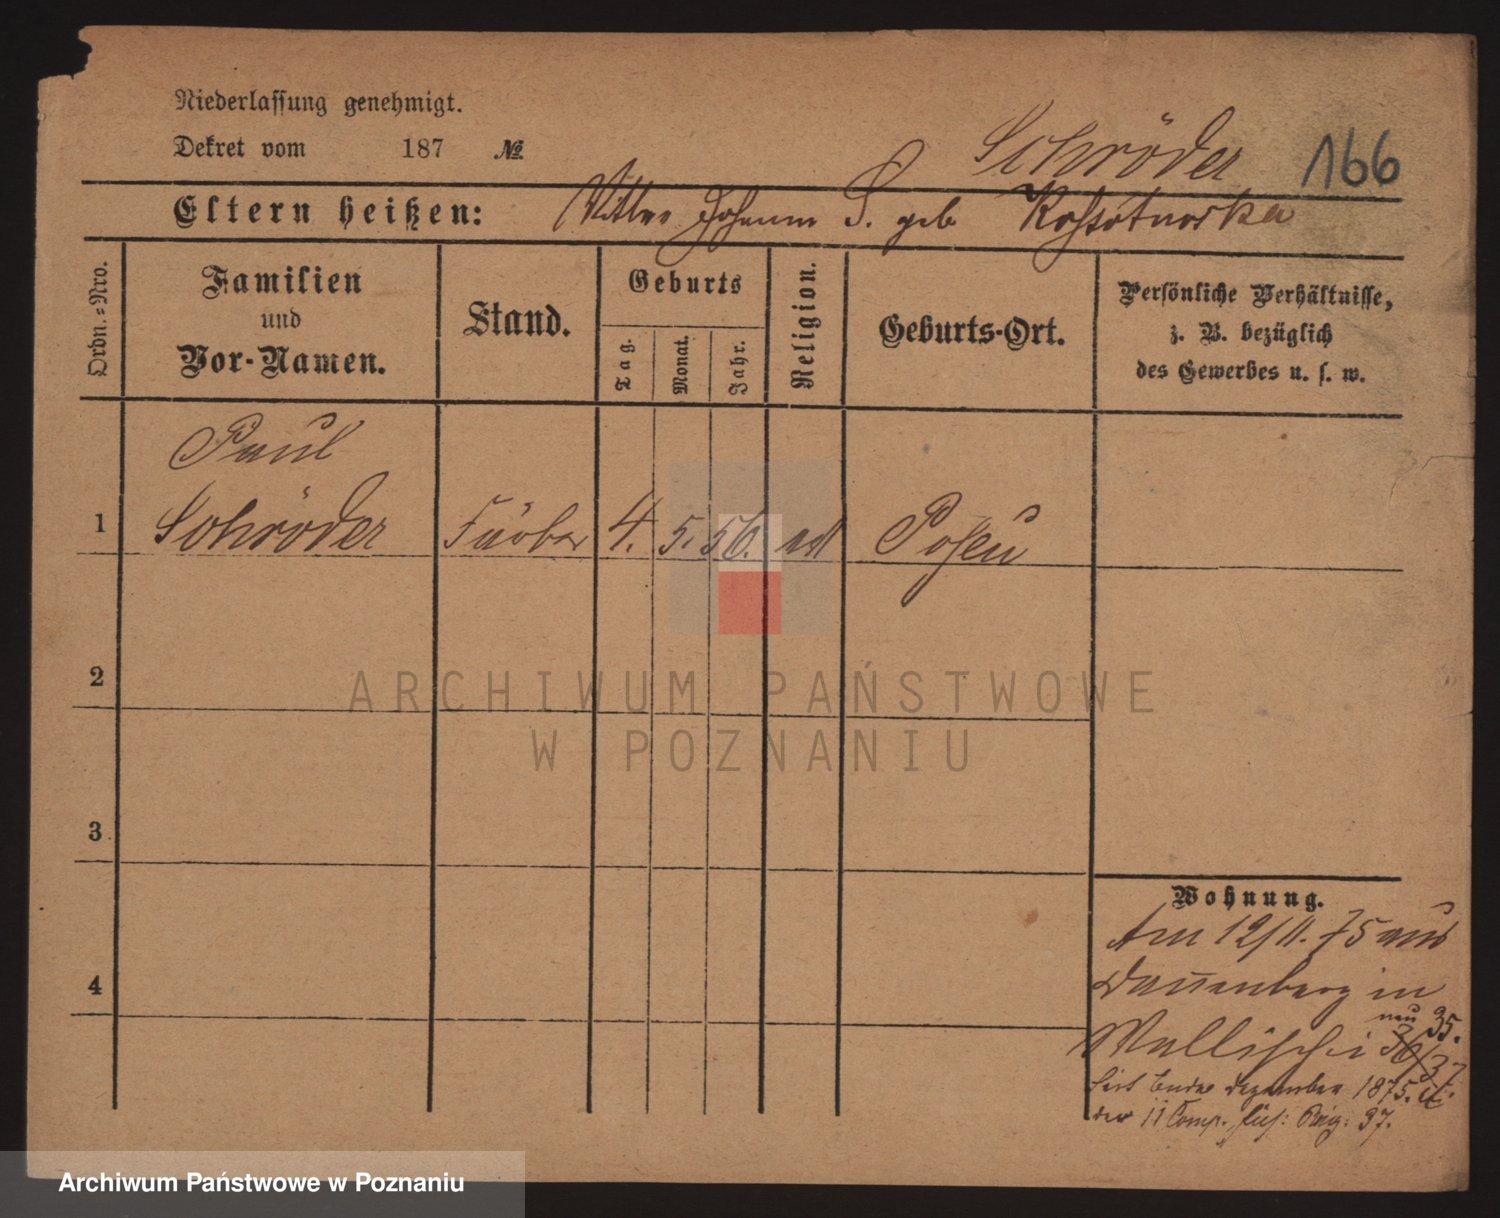 Niederlassung genehmigt.
Dekret vom 187 №
Schröder 166
Eltern heißen: Johann S. geb
Ordn.=Nro.
Familien
und
Vor-Namen.
Stand.
Geburts
Tag.
Monat.
Jahr.
Religion.
Geburts-Ort.
Persönliche Verhältnisse,
z. B. bezüglich
des Gewerbes u. s. w.
1
Paul
Schröder Färber 4. 5. 56. Posen
2
3
4
Wohnung.
Am 12/11. 75 aus
in
neu 35.
Wallischei 36/37
Seit Ende Dezember 1875.
der 11 Comp. Füs: Reg: 37.
ARCHIWUM PAŃSTWOWE
W POZNANIU
Archiwum Państwowe w Poznaniu